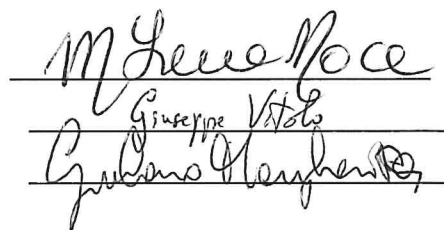 M Irene Noce
Giuseppe Vitolo
Giuliano Margherita